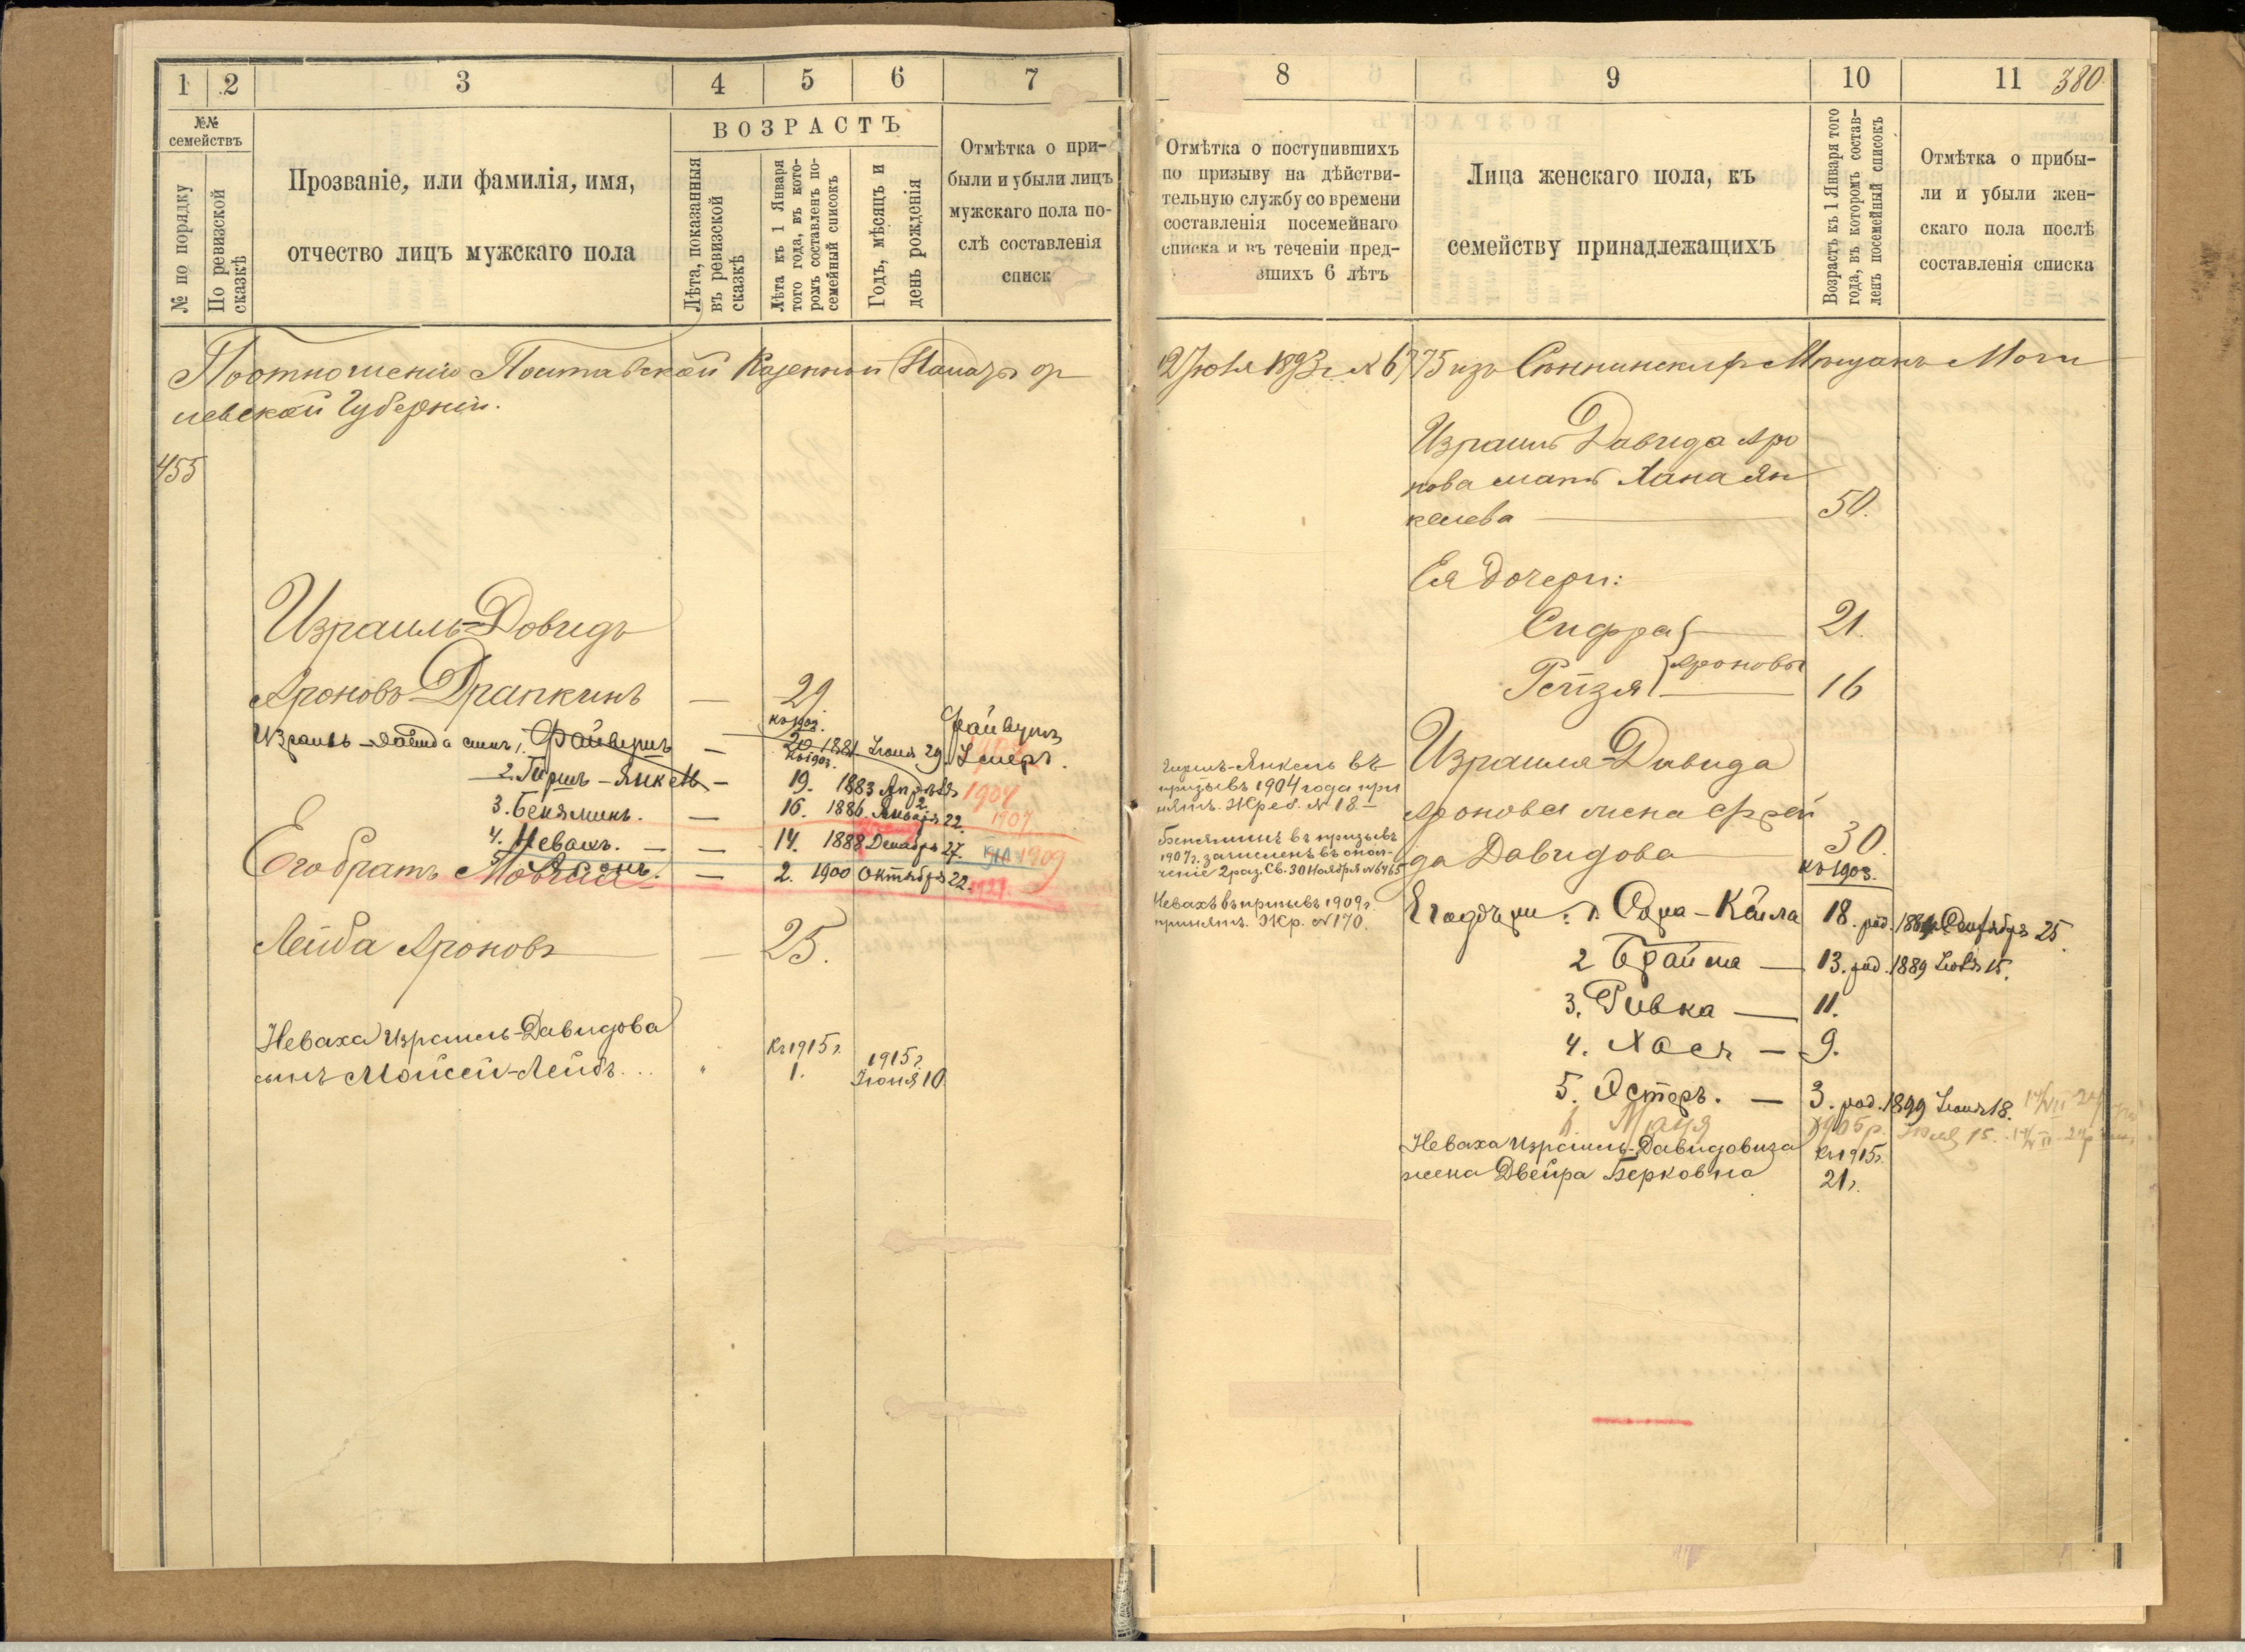 1 2 3 4 5 6 7
№№ семействъ
№ по порядку
По ревизской сказкѣ
Прозваніе, или фамилія, имя,
отчество лицъ мужскаго пола
ВОЗРАСТЪ
Лѣта, показанныя
въ ревизской
сказкѣ
Лѣта къ 1 Января
того года, въ кото-
ромъ составленъ по-
семейный списокъ
Годъ, мѣсяцъ и
день рожденія
Отмѣтка о при-
были и убыли лицъ
мужскаго пола по-
слѣ составленія
списк
Поотношенію Полтавской Казенной Палаты от
левской Губерніи.
455
Израиль-Довидъ
Ароновъ Драпкинъ — 29.
къ 1903.
Израиль-Давида сынъ 1. Файвушъ — 20 1881 Іюня 29. Файвушъ
Умеръ.
къ 1903.
2. Гиршъ-Янкель — 19. 1883 Апрѣля 2 1904
3. Беняминъ. — 16. 1886 Января 22. 1907
4. Невахъ. — 14. 1888 Декабрь 27. 1909
5. Аронъ. — 2. 1900 Октября 22. 1921.
Его братъ
Лейба Ароновъ — 25.
Неваха Израиль-Давидова
сынъ Мойсей-Лейбъ... " Къ 1915 г. 1. 1915 г. Іюня 10
8 9 10 11 380.
Отмѣтка о поступившихъ
по призыву на дѣйстви-
тельную службу со времени
составленія посемейнаго
списка и въ теченіи пред-
вшихъ 6 лѣтъ
Лица женскаго пола, къ
семейству принадлежащихъ
Возрастъ къ 1 Января того
года, въ которомъ состав-
ленъ посемейный списокъ
Отмѣтка о прибы-
ли и убыли жен-
скаго пола послѣ
составленія списка
2 Іюля 1893 г. № 6775 изъ Сѣннинскихъ Мѣщанъ Моги
Израиль Давида Аро
нова мать Хана Ян
келева — 50.
Ея дочери:
Сифра — 21.
Ароновы
Рейзя — 16
Гиршъ-Янкель въ
призывъ 1904 года при
нятъ. Жреб. № 18 —
Беняминъ въ призывъ
1907 г. зачисленъ въ опол
ченіе 2 раз. Св. 30 Ноября № 6465
Невахъ въ призывъ 1909 г.
принятъ. Жр. № 170.
Израиля-Давида
Аронова жена Фрей
да Давидова — 30.
къ 1903.
Его дочери: 1. Сора-Кейла 18. род. 1884 Сентября 25.
2 Брайна — 13. род. 1889 Іюля 15.
3. Ривка — 11.
4. Хася — 9.
5. Эстеръ. — 3. род. 1899 Іюня 18.
1905 г.
Неваха Израиль-Давидовича
жена Двейра Берковна
Къ 1915 г.
21 г.